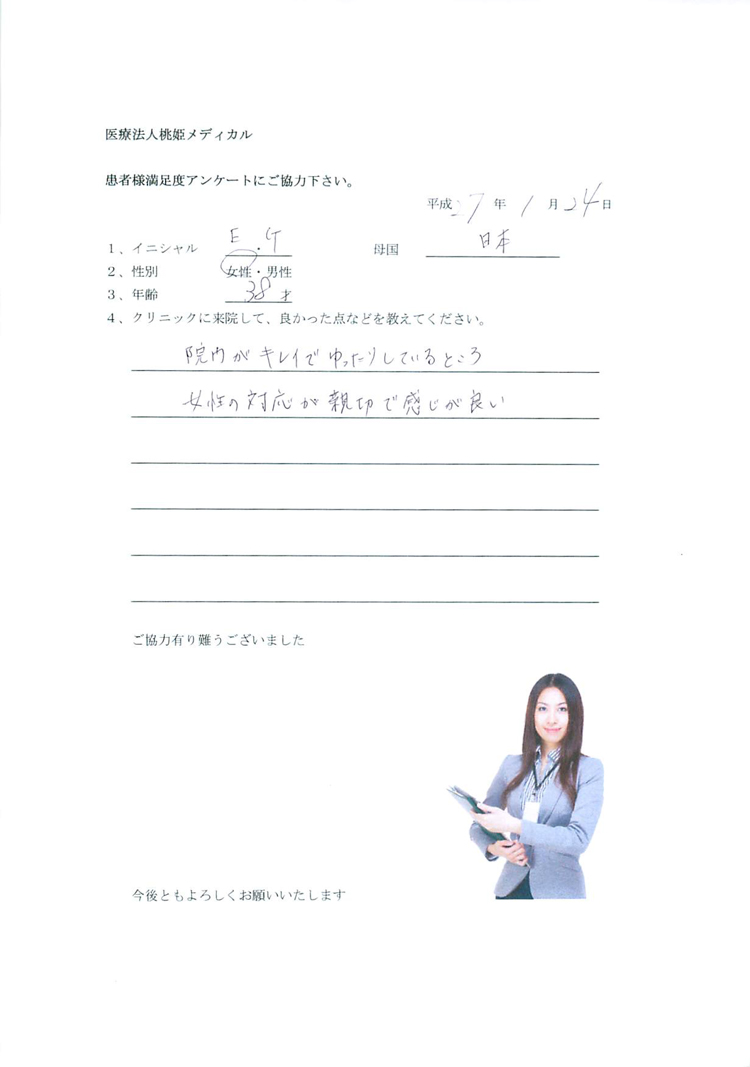 医療法人桃姫メディカル
患者様満足度アンケートにご協力下さい。
平成27年1月24日
1、イニシャル E.G 母国 日本
2、性別 女性・男性
3、年齢 38才
4、クリニックに来院して、良かった点などを教えてください。
院内がキレイでゆったりしているところ
女性の対応が親切で感じが良い
ご協力有り難うございました
今後ともよろしくお願いいたします